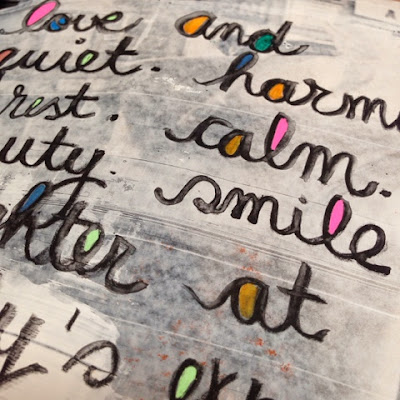 love and
quiet. harm
rest. calm.
uty. smile
ghter at
y's